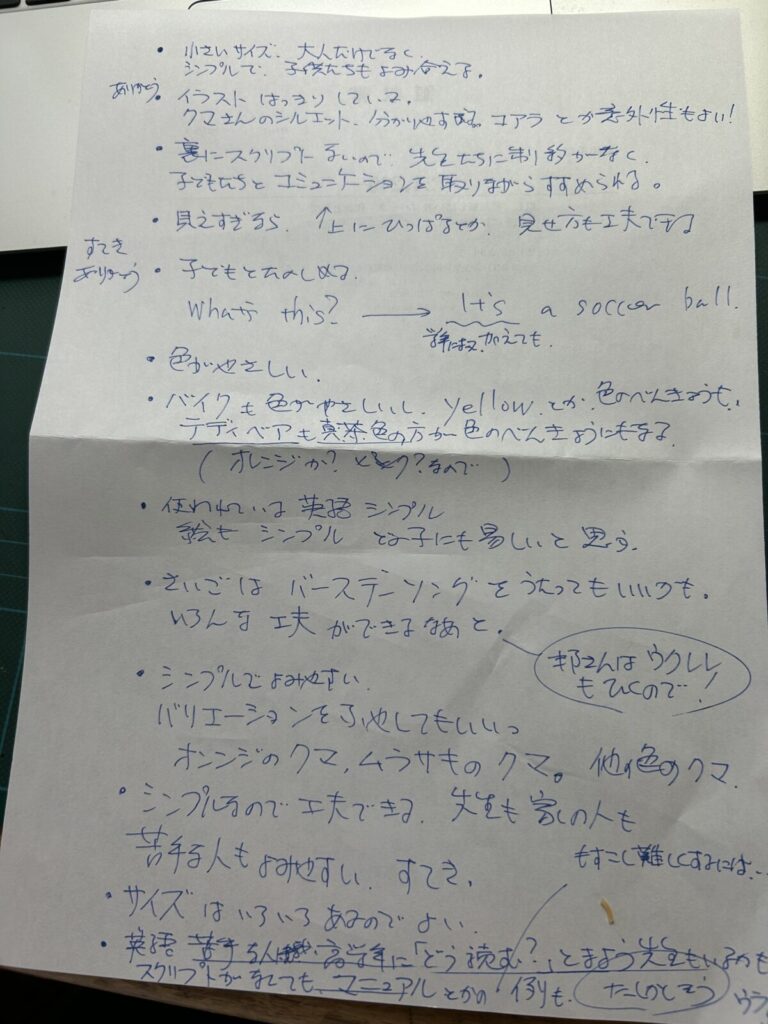 ・小さいサイズ、大人だけでなく、
シンプルで、子供たちもよみ合える。
ありがとう。
・イラスト はっきりしている。
クマさんのシルエット、分かりやすい コアラ とか 意外性もよい!
・裏にスクリプト ないので 先生たちに制約がなく、
子どもたちと コミュニケーションを取りながら すすめられる。
・見えすぎるなら、↑上に ひっぱるとか、見せ方も工夫できる
すてき
ありがとう
・子どもと たのしめる。
What's this? → It's a soccer ball.
学年によって、かえても。
・色がやさしい。
・バイク も 色が やさしいし、yellow とか、色のべんきょうも、
テディベア も 真茶色の方が 色のべんきょうにもなる
( オレンジか? なので )
・使われている 英語 シンプル
絵も シンプル どの子にも易しいと思う。
・さいごは バースデーソング をうたってもいいかも。
いろんな 工夫 ができるなあ と。
さんは ウクレレ
も ひくので!
・シンプルで よみやすい。
バリエーションを ふやしてもいい。
オレンジの クマ、ムラサキの クマ。他の色の クマ、
・シンプルなので 工夫できる、先生も 家の人も
苦手な人も よみやすい、すてき。
もすこし難しくするには…
・サイズ は いろいろ あるので よい。
・英語 高学年に「どう読む?」とまよう先生もいるかも
スクリプトが なくても、マニュアル とかの 例も、たしかにそう